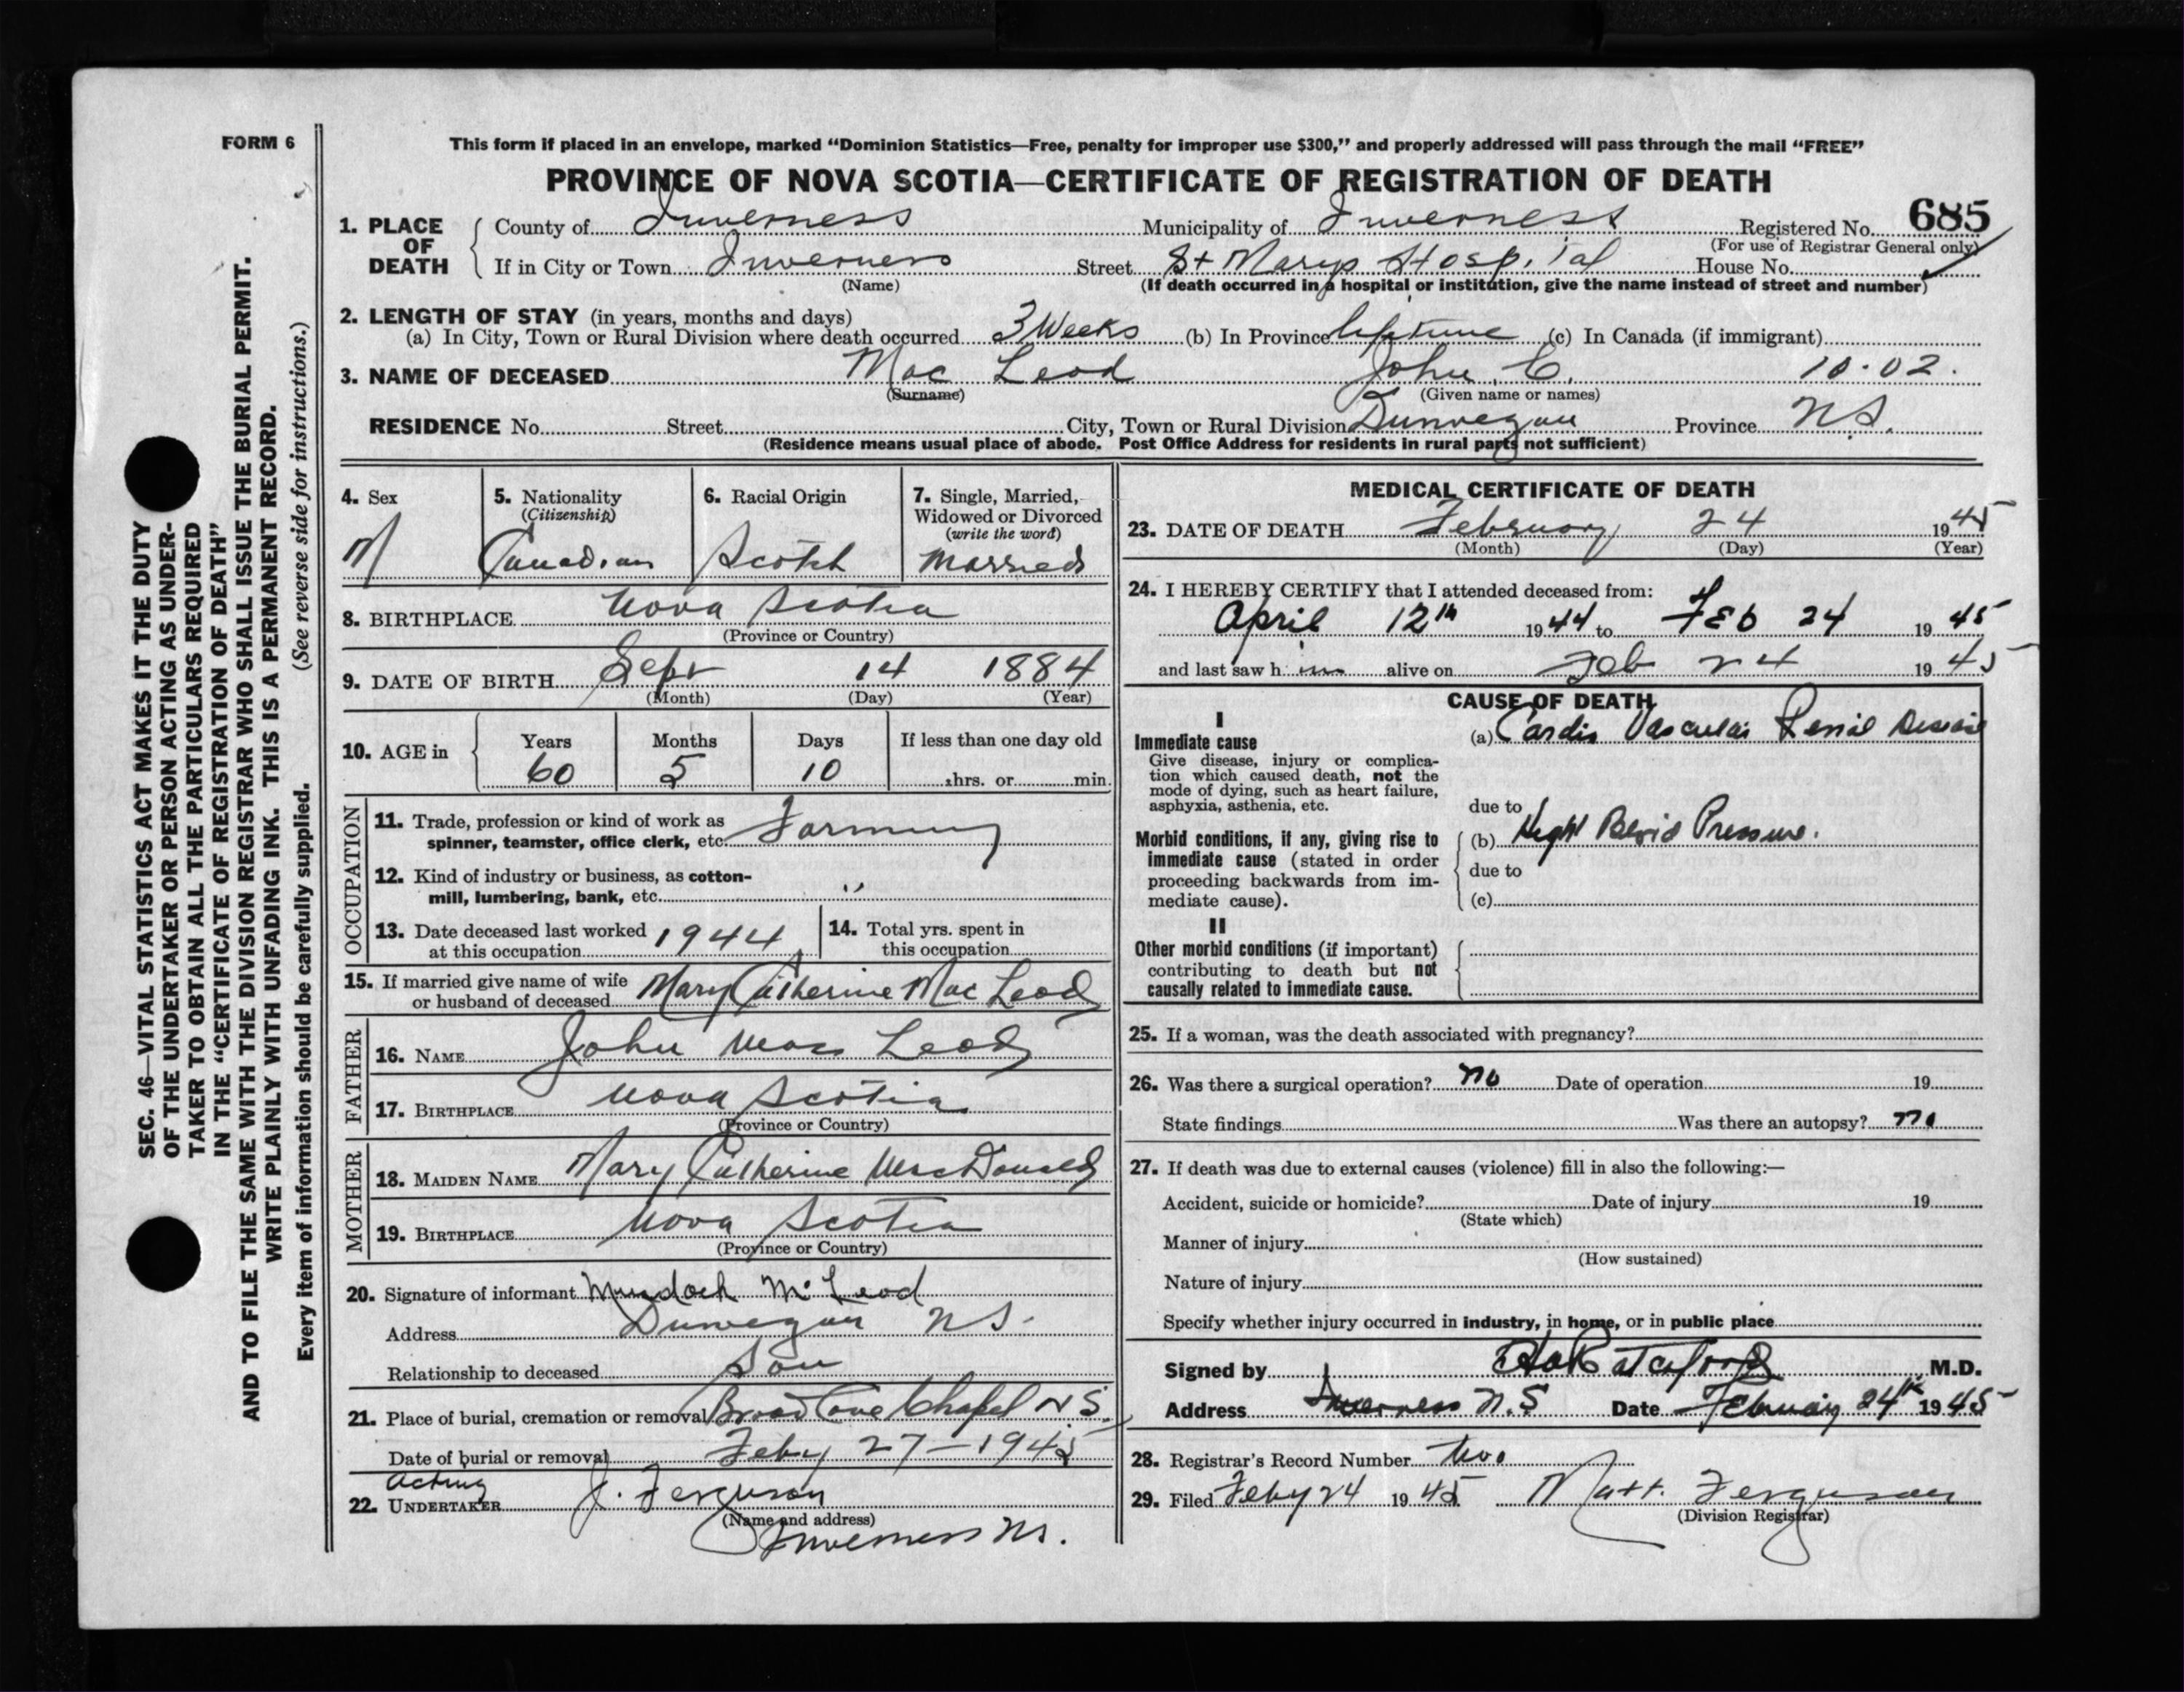 FORM 6
This form if placed in an envelope, marked "Dominion Statistics—Free, penalty for improper use $300," and properly addressed will pass through the mail "FREE"
PROVINCE OF NOVA SCOTIA—CERTIFICATE OF REGISTRATION OF DEATH
1. PLACE OF DEATH
County of Inverness Municipality of Inverness Registered No. 685
(For use of Registrar General only)
If in City or Town Inverness Street St Marys Hospital House No.
(Name) (If death occurred in a hospital or institution, give the name instead of street and number)
2. LENGTH OF STAY (in years, months and days)
(a) In City, Town or Rural Division where death occurred 3 Weeks (b) In Province lifetime (c) In Canada (if immigrant)
3. NAME OF DECEASED Mac Leod John C. 10.02.
(Surname) (Given name or names)
RESIDENCE No. Street City, Town or Rural Division Dunvegan Province N.S.
(Residence means usual place of abode. Post Office Address for residents in rural parts not sufficient)
4. Sex
M
5. Nationality
(Citizenship)
Canadian
6. Racial Origin
Scotch
7. Single, Married,
Widowed or Divorced
(write the word)
Married
8. BIRTHPLACE Nova Scotia
(Province or Country)
9. DATE OF BIRTH Sept 14 1884
(Month) (Day) (Year)
10. AGE in
Years Months Days If less than one day old
60 5 10 hrs. or min.
OCCUPATION
11. Trade, profession or kind of work as
spinner, teamster, office clerk, etc. Farming
12. Kind of industry or business, as cotton-
mill, lumbering, bank, etc. "
13. Date deceased last worked
at this occupation 1944
14. Total yrs. spent in
this occupation
15. If married give name of wife
or husband of deceased Mary Catherine Mac Leod
FATHER
16. NAME John Mac Leod
17. BIRTHPLACE Nova Scotia
(Province or Country)
MOTHER
18. MAIDEN NAME Mary Catherine MacDonald
19. BIRTHPLACE Nova Scotia
(Province or Country)
20. Signature of informant Murdoch McLeod
Address Dunvegan N.S.
Relationship to deceased Son
21. Place of burial, cremation or removal Broad Cove Chapel N S.
Date of burial or removal Feby 27-1945
Acting
22. UNDERTAKER J. Ferguson
(Name and address)
Inverness N.S.
MEDICAL CERTIFICATE OF DEATH
23. DATE OF DEATH February 24 1945
(Month) (Day) (Year)
24. I HEREBY CERTIFY that I attended deceased from:
April 12th 1944 to Feb 24 1945
and last saw him alive on Feb 24 1945
CAUSE OF DEATH
I
Immediate cause
Give disease, injury or complica-
tion which caused death, not the
mode of dying, such as heart failure,
asphyxia, asthenia, etc.
(a) Cardio Vascular Renal Disease
due to
Morbid conditions, if any, giving rise to
immediate cause (stated in order
proceeding backwards from im-
mediate cause).
(b) High Blood Pressure.
due to
(c)
II
Other morbid conditions (if important)
contributing to death but not
causally related to immediate cause.
25. If a woman, was the death associated with pregnancy?
26. Was there a surgical operation? no Date of operation 19
State findings Was there an autopsy? no
27. If death was due to external causes (violence) fill in also the following:—
Accident, suicide or homicide? Date of injury 19
(State which)
Manner of injury
(How sustained)
Nature of injury
Specify whether injury occurred in industry, in home, or in public place
Signed by M.D.
Address Inverness N.S Date February 24th 1945
28. Registrar's Record Number two
29. Filed Feby 24 1945 Matt. Ferguson
(Division Registrar)
SEC. 46—VITAL STATISTICS ACT MAKES IT THE DUTY
OF THE UNDERTAKER OR PERSON ACTING AS UNDER-
TAKER TO OBTAIN ALL THE PARTICULARS REQUIRED
IN THE "CERTIFICATE OF REGISTRATION OF DEATH"
AND TO FILE THE SAME WITH THE DIVISION REGISTRAR WHO SHALL ISSUE THE BURIAL PERMIT.
WRITE PLAINLY WITH UNFADING INK. THIS IS A PERMANENT RECORD.
Every item of information should be carefully supplied. (See reverse side for instructions.)